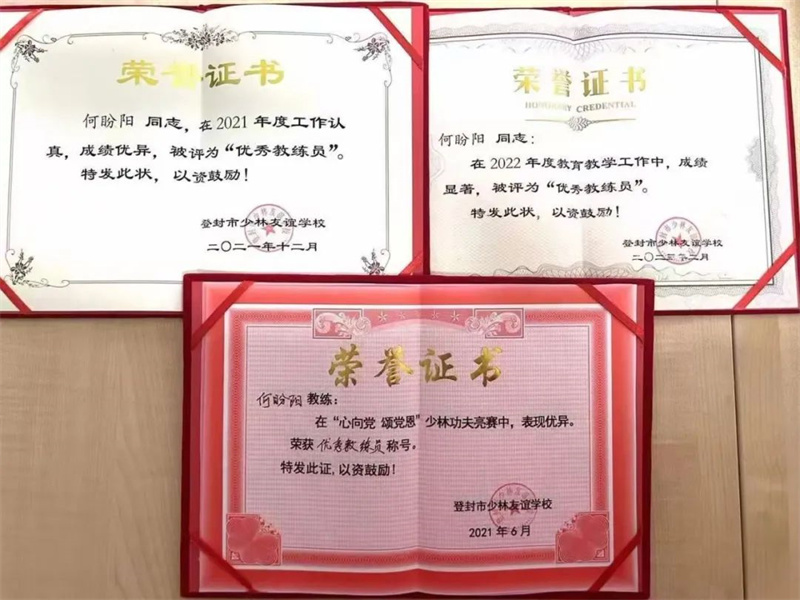 荣誉证书
何盼阳 同志，在2021年度工作认
真，成绩优异，被评为“优秀教练员”。
特发此状，以资鼓励！
登封市少林友谊学校
二〇二一年十二月
荣誉证书
HONORARY CREDENTIAL
何盼阳 同志：
在2022年度教育教学工作中，成绩
显著，被评为“优秀教练员”。
特发此状，以资鼓励！
登封市少林友谊学校
二〇二三年二月
荣誉证书
何盼阳 教练：
在“心向党 颂党恩”少林功夫亮赛中，表现优异。
荣获 优秀教练员 称号。
特发此证，以资鼓励！
登封市少林友谊学校
2021年6月